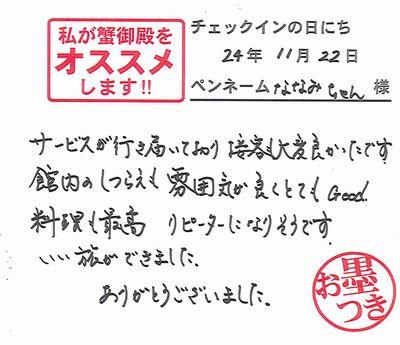 私が蟹御殿を
オススメ
します!!
チェックインの日にち
24年 11月 22日
ペンネーム ななみちゃん 様
サービスが行き届いており 接客も大変良かったです
館内のしつらえも 雰囲気が良くとてもGood.
料理も最高 リピーターになりそうです。
いい旅ができました。
ありがとうございました。
お墨つき